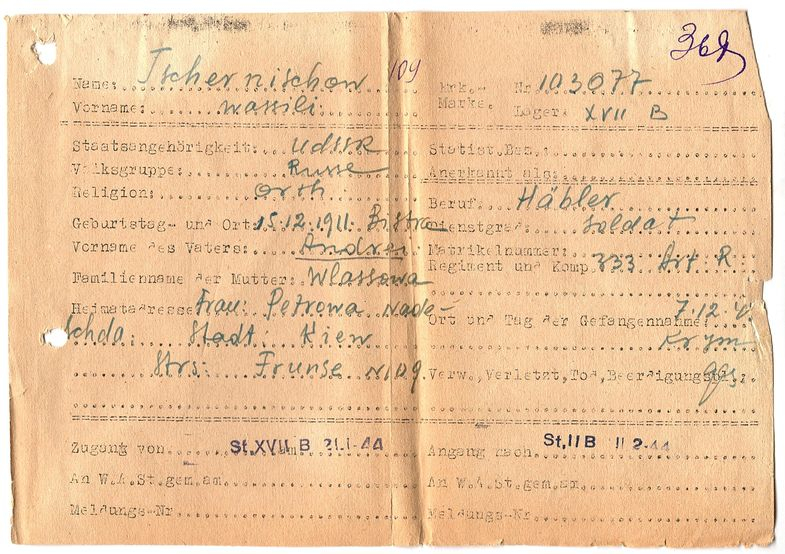 Name: Tschernischow 109
Vorname: Wassili
Staatsangehörigkeit: UdSSR
Volksgruppe: Russe
Religion: Orth
Geburtstag- und Ort: 15.12.1911. Bistra
Vorname des Vaters: Andrei
Familienname der Mutter: Wlassowa
Heimatadresse: Frau: Petrowa Nade-
schda: Stadt: Kiew
Strs: Frunse N 109
Zugang von St.XVII B am 21.1.44
An W.A.St.gem.am
Meldungs-Nr
369
Erk.- Nr 103077
Marke. Lager: XVII B
Statist.Bez.:
Anerkannt als:
Beruf: Häbler
Dienstgrad: Soldat
Matrikelnummer:
Regiment und Komp. 333 Art. R.
Ort und Tag der Gefangennahme: 7.12.
Krym
Verw.,Verletzt,Tod,Beerdigungsto.:
Abgang nach St,II B 11 2-44
An W.A.St.gem.am
Meldungs-Nr